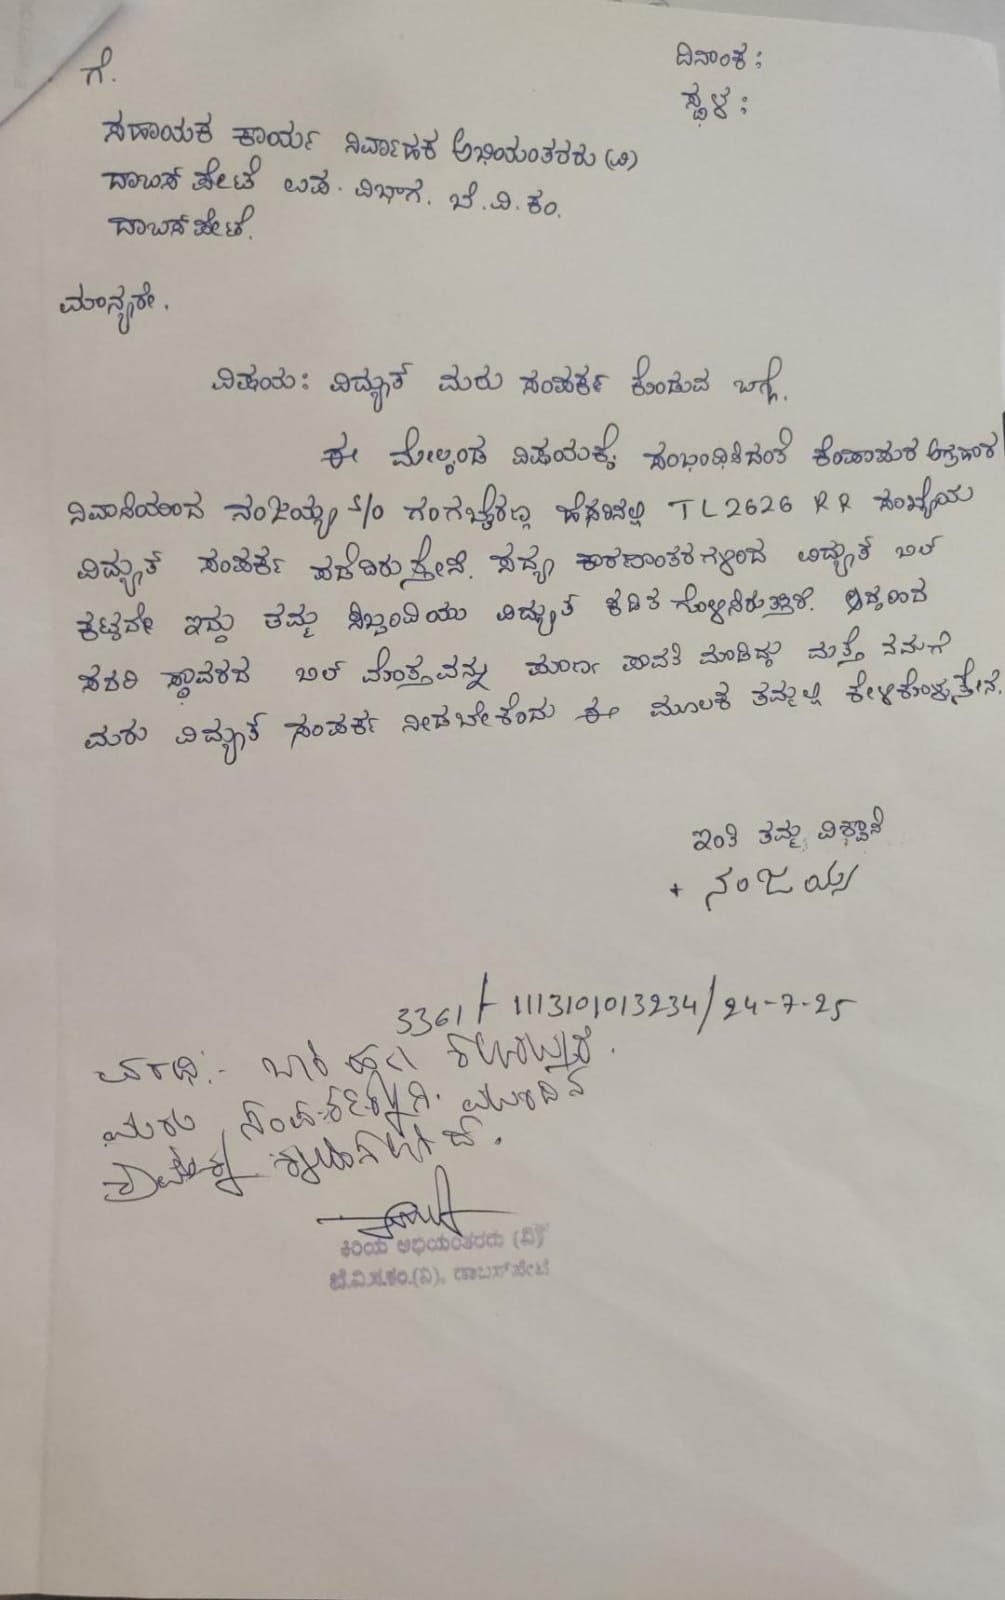 ದಿನಾಂಕ :
ಸ್ಥಳ :
ಗೆ.
ಸಹಾಯಕ ಕಾರ್ಯ ನಿರ್ವಾಹಕ ಅಭಿಯಂತರರು (ವಿ)
ದಾಬಸ್ ಪೇಟೆ ಉಪ. ವಿಭಾಗ. ಬೆ.ವಿ.ಕಂ.
ದಾಬಸ್ ಪೇಟೆ.
ಮಾನ್ಯರೇ.
ವಿಷಯ : ವಿದ್ಯುತ್ ಮರು ಸಂಪರ್ಕ ಕೊಂಡುವ ಬಗ್ಗೆ.
ಈ ಮೇಲ್ಕಂಡ ವಿಷಯಕ್ಕೆ ಸಂಬಂಧಿಸಿದಂತೆ ಕೆಂಪಾಪುರ ಅಗ್ರಹಾರ
ನಿವಾಸಿಯಾದ ನಂಜಯ್ಯ S/O ಹೆಸರಿನಲ್ಲಿ TL2626 RR ಸಂಖ್ಯೆಯ
ವಿದ್ಯುತ್ ಸಂಪರ್ಕ ಪಡೆದಿರುತ್ತೇನೆ. ಸದ್ಯ ಕಾರಣಾಂತರಗಳಿಂದ ವಿದ್ಯುತ್ ಬಿಲ್
ಕಟ್ಟದೇ ಇದ್ದು ತಮ್ಮ ಸಿಬ್ಬಂದಿಯು ವಿದ್ಯುತ್ ಕಡಿತ ಗೊಳಿಸಿರುತ್ತಾರೆ. ಆದ್ದರಿಂದ
ಸದರಿ ಸ್ಥಾವರದ ಬಿಲ್ ಮೊತ್ತವನ್ನು ಪೂರ್ಣ ಪಾವತಿ ಮಾಡಿದ್ದು ಮತ್ತೆ ನಮಗೆ
ಮರು ವಿದ್ಯುತ್ ಸಂಪರ್ಕ ನೀಡಬೇಕೆಂದು ಈ ಮೂಲಕ ತಮ್ಮಲ್ಲಿ ಕೇಳಿಕೊಳ್ಳುತ್ತೇನೆ.
ಇಂತಿ ತಮ್ಮ ವಿಶ್ವಾಸಿ
+ ನಂಜಯ್ಯ
3361/- 111310101013234/24-7-25
ವರದಿ:- ಬಾಕಿ ಹಣ
ಮರು
ಕಿರಿಯ ಅಭಿಯಂತರರು (ವಿ)
ಬೆ.ವಿ.ಸ.ಕಂ.(ನಿ), ಡಾಬಸ್ ಪೇಟೆ